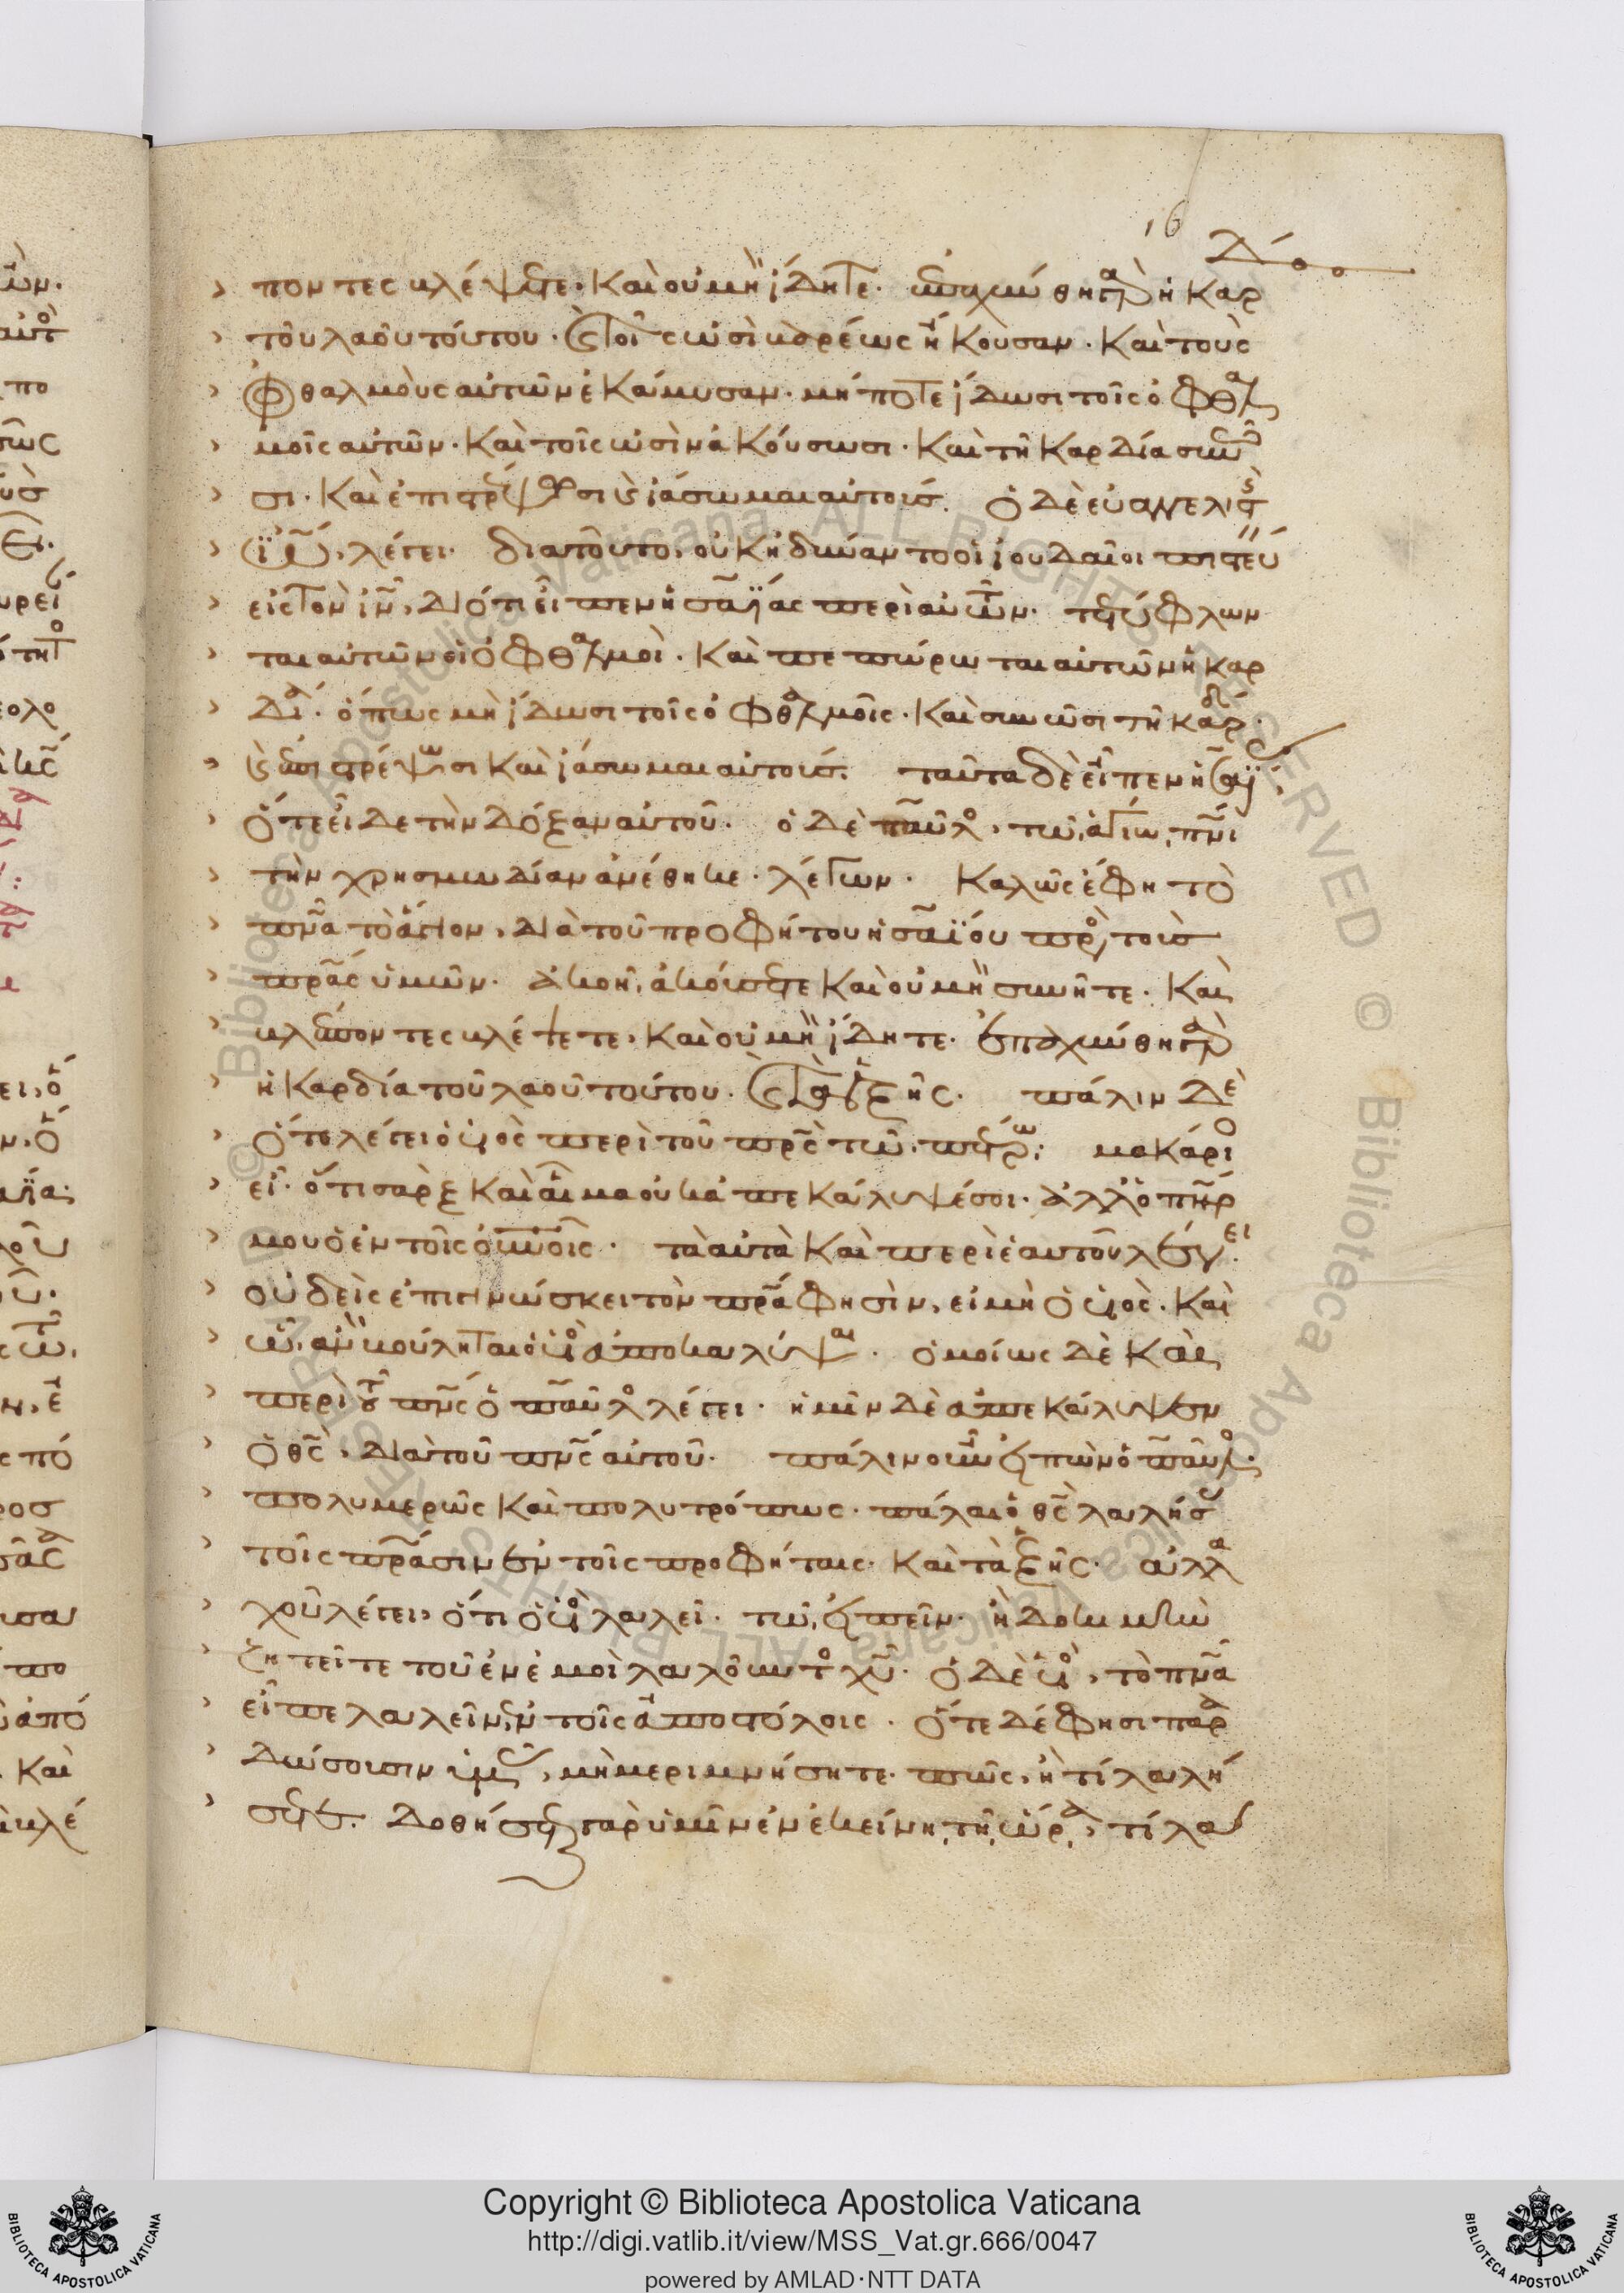 16
πον τες βλέψετε· καὶ οὐ μὴ ἴδητε· ἐπαχύνθη γὰρ ἡ καρδία
τοῦ λαοῦ τούτου· καὶ τοῖς ὠσὶ βαρέως ἤκουσαν· καὶ τοὺς
ὀφθαλμοὺς αὐτῶν ἐκάμυσαν· μήποτε ἴδωσι τοῖς ὀφθαλ
μοῖς αὐτῶν· καὶ τοῖς ὠσὶν ἀκούσωσι· καὶ τῆ καρδία συνῶ
σι· καὶ ἐπιστρέψωσι καὶ ἰάσωμαι αὐτούς. ὁ δὲ εὐαγγελιστὴς
ἰω, λέγει· διατοῦτο, οὐκ ἠδύναντο οἱ ἰουδαῖοι πιστεύ
εἰς τὸν ιν, διότι εἶπεν ἡσαΐας περὶ αὐτῶν· τετύφλων
ται αὐτῶν οἱ ὀφθαλμοὶ· καὶ πεπώρωται αὐτῶν ἡ καρ
δία· ὅπως μὴ ἴδωσι τοῖς ὀφθαλμοῖς· καὶ συνῶσι τῆ καρδία·
καὶ ἐπιστρέψωσι καὶ ἰάσωμαι αὐτούς. ταῦτα δὲ εἶπεν ἡσαΐ
ὅτε εἶδε τὴν δόξαν αὐτοῦ· ὁ δὲ παῦλος, τῶ ἁγίω πνι
τὴν χρησμωδίαν ἀνέθηκε· λέγων· καλῶς ἔφη τὸ
πνα τὸ ἅγιον, διὰ τοῦ προφήτου ἡσαΐου πρὸς τοὺς
πρας ὑμῶν· ἀκοῆ ἀκούσετε καὶ οὐ μὴ συνῆτε· καὶ
βλέποντες βλέψετε, καὶ οὐ μὴ ἴδητε· ἐπαχύνθη γὰρ
ἡ καρδία τοῦ λαοῦ τούτου· καὶ τὰ ἑξῆς· πάλιν δὲ
ὅτε λέγει ὁ υἱὸς περὶ τοῦ πρς τῶ πέτρω· μακάριος
εἶ· ὅτι σὰρξ καὶ αἷμα οὐκ ἀπεκάλυψέ σοι· ἀλλ' ὁ πηρ
μου ὁ ἐν τοῖς οὐνοῖς· τὰ αὐτὰ καὶ περὶ ἑαυτοῦ λέγει·
οὐδεὶς ἐπιγινώσκει τὸν πρα φησὶν, εἰ μὴ ὁ υἱός· καὶ
ὧ ἂν βούληται ὁ υἱὸς ἀποκαλύψαι· ὁμοίως δὲ καὶ
περὶ τοῦ πνς ὁ παῦλος λέγει· ἡμῖν δὲ ἀπεκάλυψεν
ὁ θς, διὰ τοῦ πνς αὐτοῦ· πάλιν οὖν εἰπὼν ὁ παῦλος·
πολυμερῶς καὶ πολυτρόπως· πάλαι ὁ θς λαλήσας
τοῖς πράσιν ἐν τοῖς προφήταις· καὶ τὰ ἑξῆς· ἀλλα
χοῦ λέγει, ὅτι ὁ υἱὸς λαλεῖ· τῶ εἰπεῖν· ἢ δοκιμὴν
ζητεῖτε τοῦ ἐν ἐμοὶ λαλοῦντος χυ· ὁ δὲ υἱὸς, τὸ πνα
εἶπε λαλεῖν ἐν τοῖς ἀποστόλοις· ὅτε δέ φησι παρα
δώσουσιν ὑμᾶς, μὴ μεριμνήσητε· πῶς, ἢ τί λαλή
σετε· δοθήσεται γὰρ ὑμῖν ἐν ἐκείνη τῆ ὥρα, τί λα
Copyright © Biblioteca Apostolica Vaticana
http://digi.vatlib.it/view/MSS_Vat.gr.666/0047
powered by AMLAD·NTT DATA